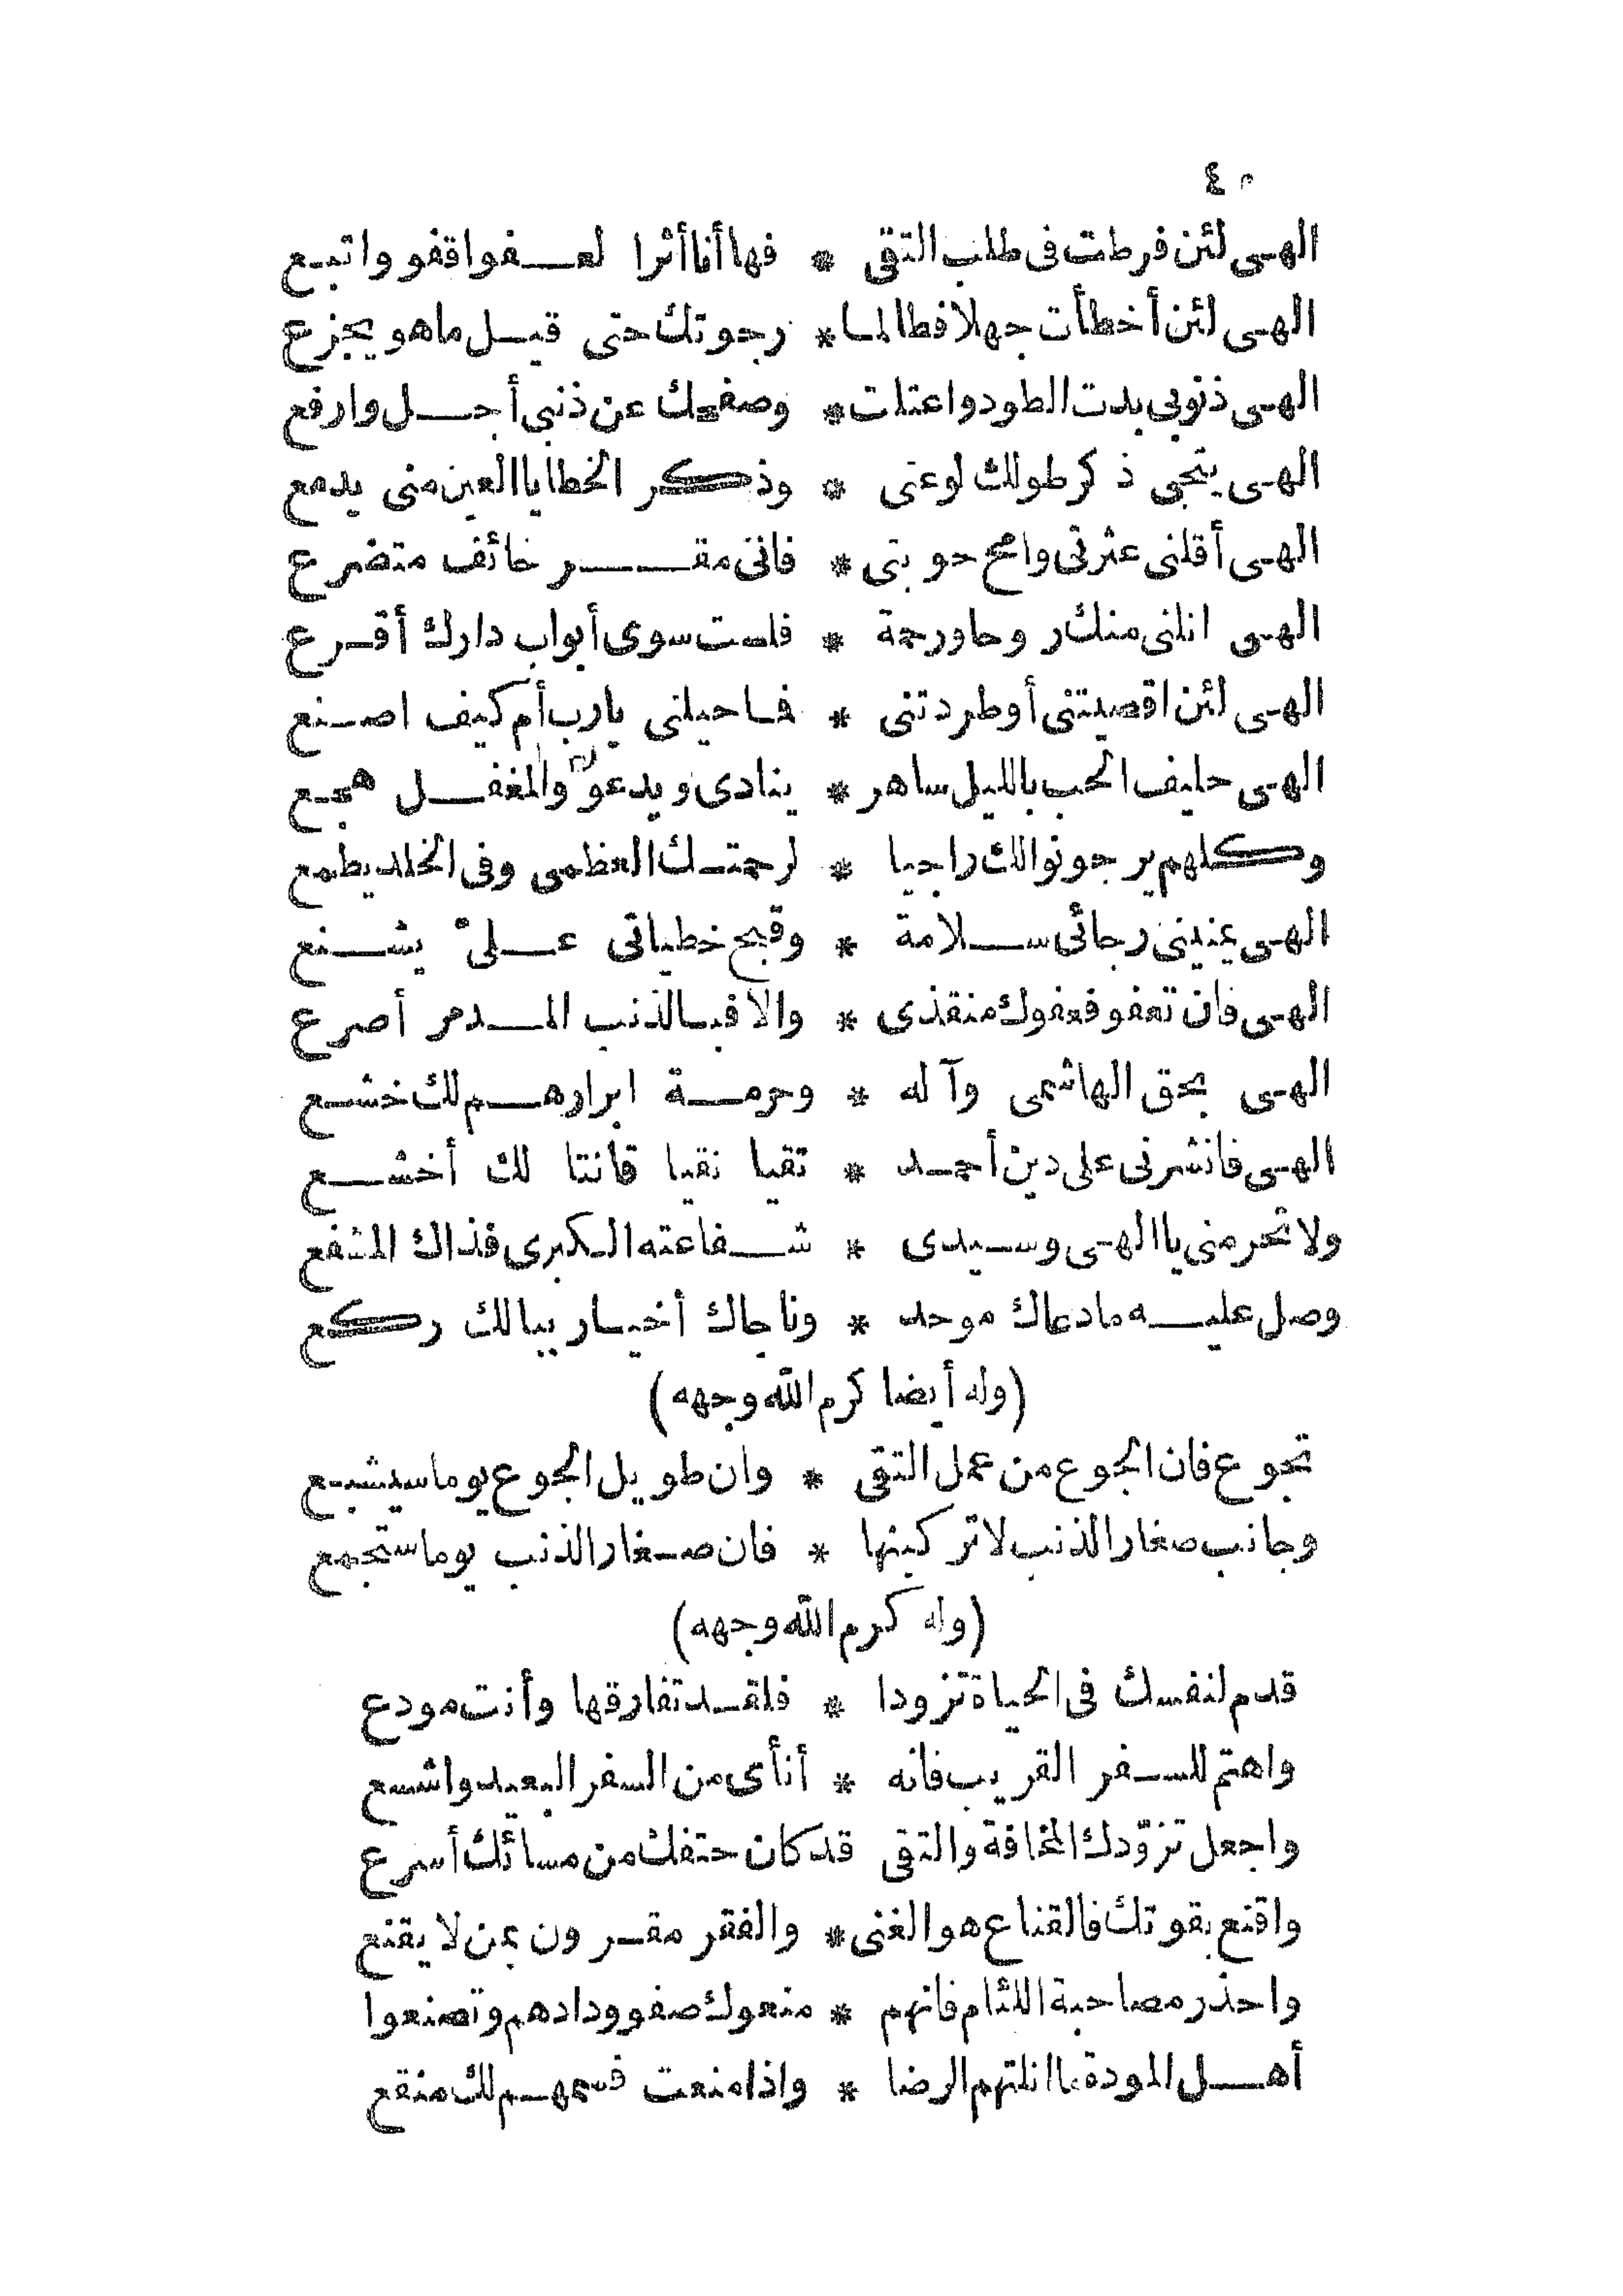 ٤٠
الهى لئن فرطت فى طلب التقى * فها أنا أثرا لعفو اقفو واتبع
الهى لئن أخطأت جهلا فطالما * رجوتك حتى قيل ما هو يجزع
الهى ذنوبى بدت الطود واعتلت * وصفحك عن ذنبى أجل وارفع
الهى ينجى ذكر طولك لوعتى * وذكر الخطايا العين منى يدمع
الهى أقلنى عثرتى وامح حوبتى * فانى مقر خائف متضرع
الهى انلنى منك روحا ورحمة * فلست سوى أبواب دارك أقرع
الهى لئن اقصيتنى أوطردتنى * فما حيلتى يارب أم كيف اصنع
الهى حليف الحب بالليل ساهر * ينادى ويدعو والمغفل هجع
وكلهم يرجو نوالك راجيا * لرحمتك العظمى وفى الخلد يطمع
الهى يمنينى رجائى سلامة * وقبح خطياتى علىّ يشنع
الهى فان تعفو فعفوك منقذى * والا فبالذنب المدمر أصرع
الهى بحق الهاشمى وآله * وحرمة ابرارهم لك خشع
الهى فانشرنى على دين أحمد * تقيا نقيا قانتا لك أخشع
ولا تحرمنى يا الهى وسيدى * شفاعته الكبرى فذاك المشفع
وصل عليه ما دعاك موحد * وناجاك أخيار ببابك ركع
(وله أيضا كرم الله وجهه)
تجوع فان الجوع من عمل التقى * وان طويل الجوع يوما سيشبع
وجانب صغار الذنب لا تركبنها * فان صغار الذنب يوما ستجمع
(وله كرم الله وجهه)
قدم لنفسك فى الحياة تزودا * فلقد تفارقها وأنت مودع
واهتم للسفر القريب فانه * أنأى من السفر البعيد واشسع
واجعل تزوّدك المخافة والتقى قد كان حتفك من مسائك أسرع
واقنع بقوتك فالقناع هو الغنى * والفقر مقرون بمن لا يقنع
واحذر مصاحبة اللئام فانهم * منعوك صفو ودادهم وتصنعوا
أهل المودة ما انلتهم الرضا * واذا منعت فسمهم لك منقع